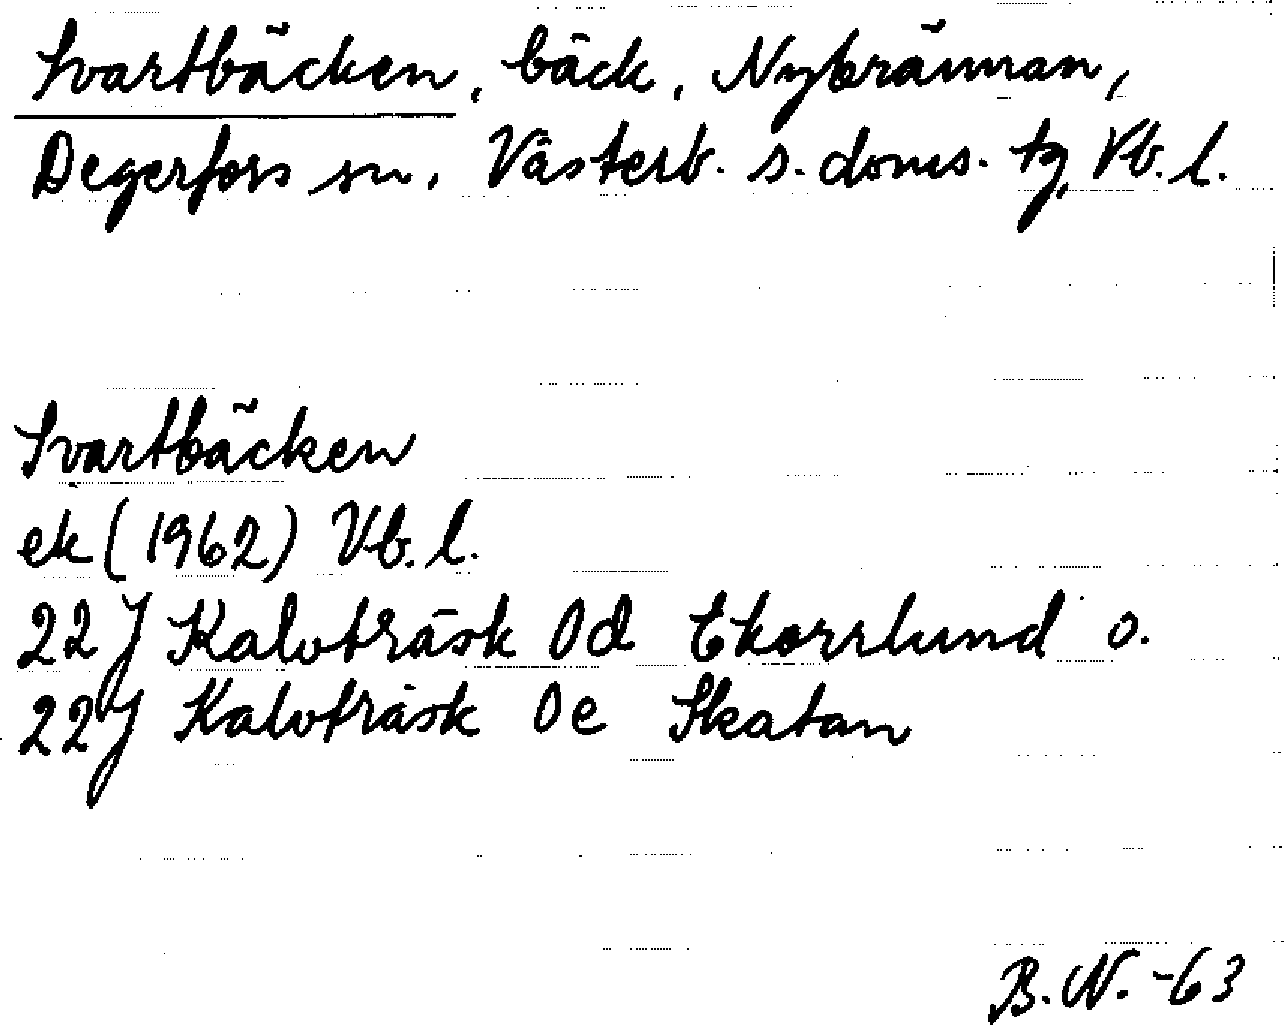 Svartbäcken, bäck, Nybrännan,
Degerfors sn. Västerb. s. doms. tg, Vb. l.
Svartbäcken
ek (1962) Vb. l.
22J Kalvträsk 0d Ekorrlund o.
22J Kalvträsk 0e Skatan
B.N. -63